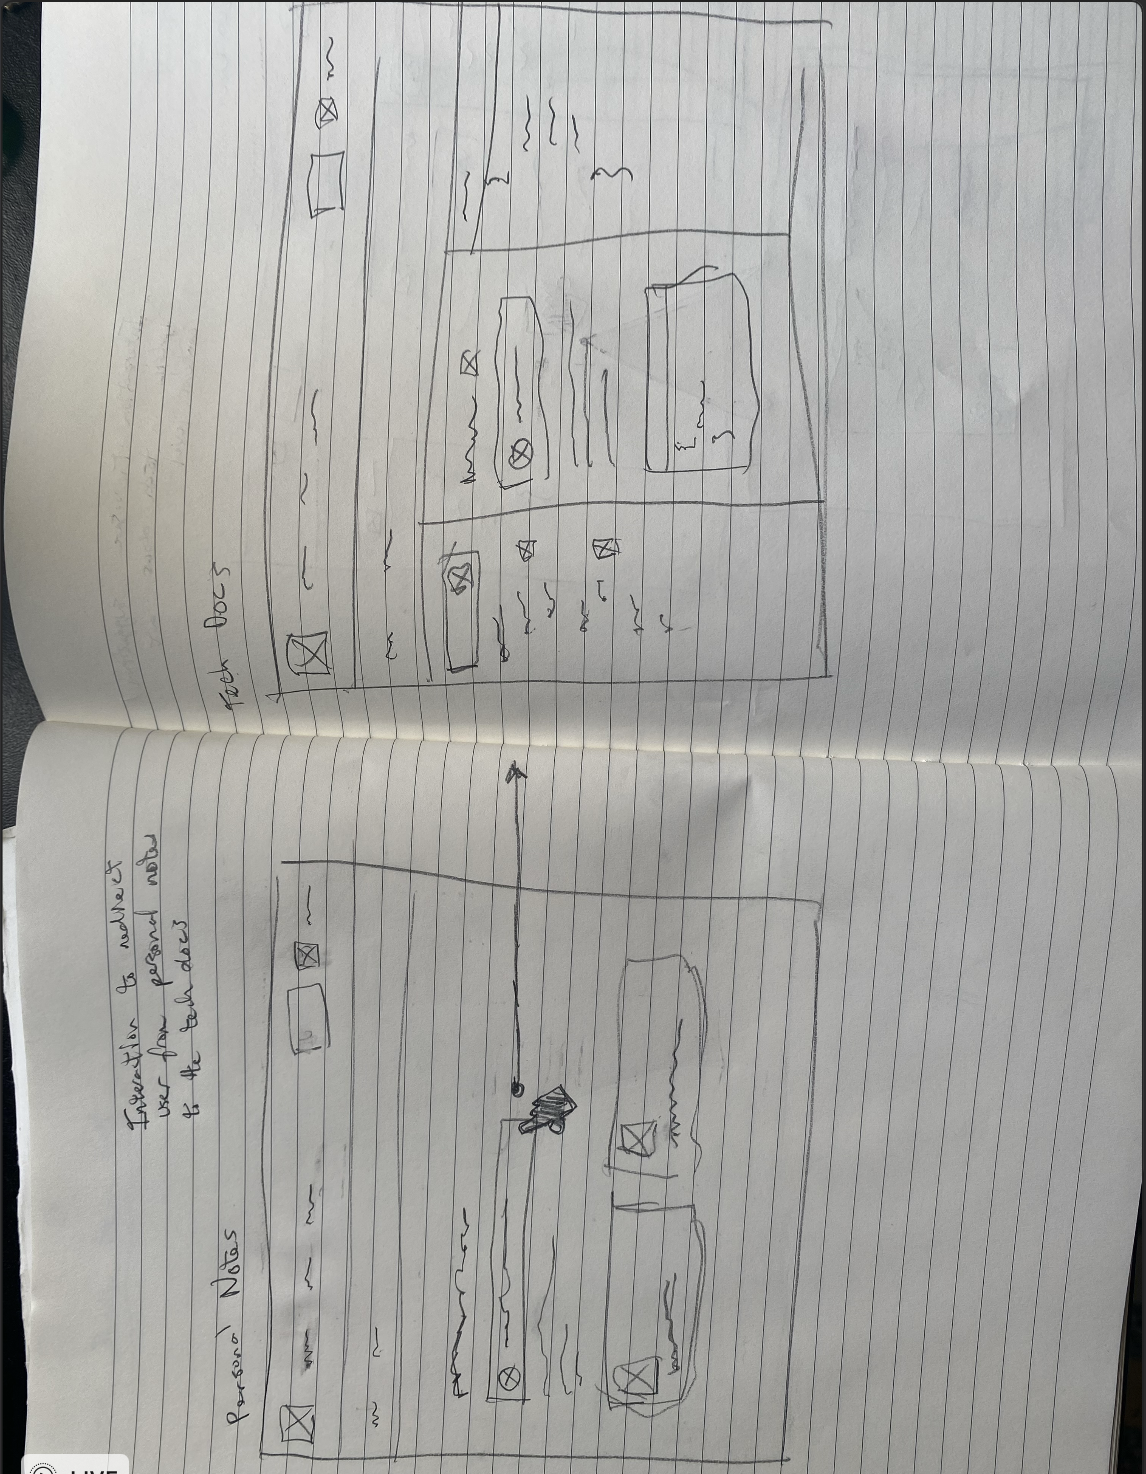 Interaction to redirect
user from personal notes
to the tech docs
Personal Notes
Tech Docs
LIVE